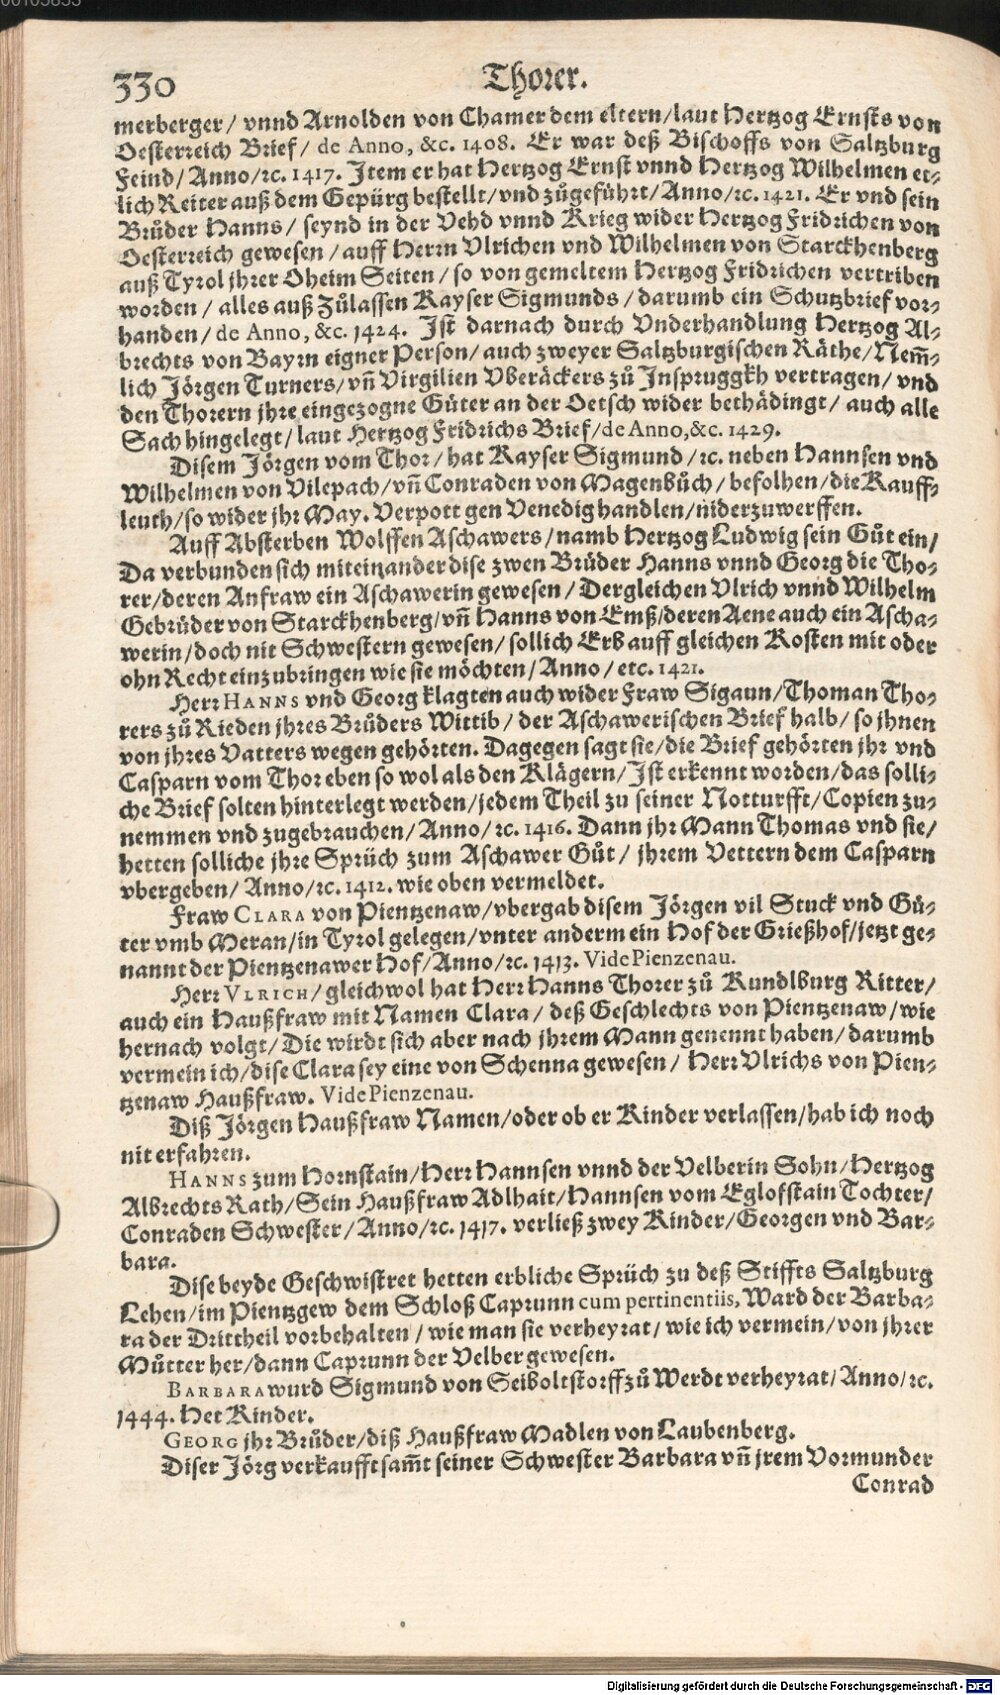 00105833
330
Thorer.
merberger/ vnnd Arnolden von Chamer dem eltern/laut Hertzog Ernsts von
Oesterreich Brief/ de Anno, &c. 1408. Er war deß Bischoffs von Saltzburg
Feind/Anno/ꝛc. 1417. Jtem er hat Hertzog Ernst vnnd Hertzog Wilhelmen et-
lich Reiter auß dem Gepürg bestellt/vnd zůgeführt/Anno/ꝛc. 1421. Er vnd sein
Brůder Hanns/ seynd in der Vehd vnnd Krieg wider Hertzog Fridrichen von
Oesterreich gewesen/auff Herrn Vlrichen vnd Wilhelmen von Starckhenberg
auß Tyrol jhrer Oheim Seiten/ so von gemeltem Hertzog Fridrichen vertriben
worden/ alles auß Zůlassen Kayser Sigmunds/darumb ein Schutzbrief vor-
handen/ de Anno, &c. 1424. Jst darnach durch Vnderhandlung Hertzog Al-
brechts von Bayrn eigner Person/auch zweyer Saltzburgischen Räthe/Nem̃-
lich Jörgen Turners/vñ Virgilien Vberäckers zů Jnspruggkh vertragen/ vnd
den Thorern jhre eingezogne Güter an der Oetsch wider bethädingt/ auch alle
Sach hingelegt/laut Hertzog Fridrichs Brief/de Anno,&c. 1429.
Disem Jörgen vom Thor/hat Kayser Sigmund/ꝛc. neben Hannsen vnd
Wilhelmen von Vilepach/vñ Conraden von Magenbůch/befolhen/die Kauff-
leuth/so wider jhr May. Verpott gen Venedig handlen/niderzuwerffen.
Auff Absterben Wolffen Aschawers/namb Hertzog Ludwig sein Gůt ein/
Da verbunden sich miteinander dise zwen Brüder Hanns vnnd Georg die Tho-
rer/deren Anfraw ein Aschawerin gewesen/Dergleichen Vlrich vnnd Wilhelm
Gebrüder von Starckhenberg/vñ Hanns von Emß/deren Aene auch ein Ascha-
werin/doch nit Schwestern gewesen/sollich Erb auff gleichen Kosten mit oder
ohn Recht einzubringen wie sie möchten/Anno/etc. 1421.
Herr HANNS vnd Georg klagten auch wider Fraw Sigaun/Thoman Tho-
rers zů Rieden jhres Brůders Wittib/der Aschawerischen Brief halb/so jhnen
von jhres Vatters wegen gehörten. Dagegen sagt sie/die Brief gehörten jhr vnd
Casparn vom Thor eben so wol als den Klägern/Jst erkennt worden/das solli-
che Brief solten hinterlegt werden/jedem Theil zu seiner Notturfft/Copien zu-
nemmen vnd zugebrauchen/Anno/ꝛc. 1416. Dann jhr Mann Thomas vnd sie/
hetten solliche jhre Sprüch zum Aschawer Gůt/ jhrem Vettern dem Casparn
vbergeben/Anno/ꝛc. 1412. wie oben vermeldet.
Fraw CLARA von Pientzenaw/vbergab disem Jörgen vil Stuck vnd Gü-
ter vmb Meran/in Tyrol gelegen/vnter anderm ein Hof der Grießhof/jetzt ge-
nannt der Pientzenawer Hof/Anno/ꝛc. 1413. Vide Pienzenau.
Herr VLRICH/gleichwol hat Herr Hanns Thorer zů Kundlburg Ritter/
auch ein Haußfraw mit Namen Clara/ deß Geschlechts von Pientzenaw/wie
hernach volgt/Die wirdt sich aber nach jhrem Mann genennt haben/darumb
vermein ich/dise Clara sey eine von Schenna gewesen/ Herr Vlrichs von Pien-
tzenaw Haußfraw. Vide Pienzenau.
Diß Jörgen Haußfraw Namen/oder ob er Kinder verlassen/hab ich noch
nit erfahren.
HANNS zum Hornstain/Herr Hannsen vnnd der Velberin Sohn/Hertzog
Albrechts Rath/Sein Haußfraw Adlhait/Hannsen vom Eglofstain Tochter/
Conraden Schwester/Anno/ꝛc. 1417. verließ zwey Kinder/Georgen vnd Bar-
bara.
Dise beyde Geschwistret hetten erbliche Sprüch zu deß Stiffts Saltzburg
Lehen/im Pientzgew dem Schloß Caprunn cum pertinentiis, Ward der Barba-
ra der Drittheil vorbehalten/wie man sie verheyrat/wie ich vermein/von jhrer
Můtter her/dann Caprunn der Velber gewesen.
BARBARA wurd Sigmund von Seiboltstorff zů Werdt verheyrat/Anno/ꝛc.
1444. Het Kinder.
GEORG jhr Brůder/diß Haußfraw Madlen von Laubenberg.
Diser Jörg verkaufft sam̃t seiner Schwester Barbara vñ jrem Vormunder
Conrad
Digitalisierung gefördert durch die Deutsche Forschungsgemeinschaft - DFG